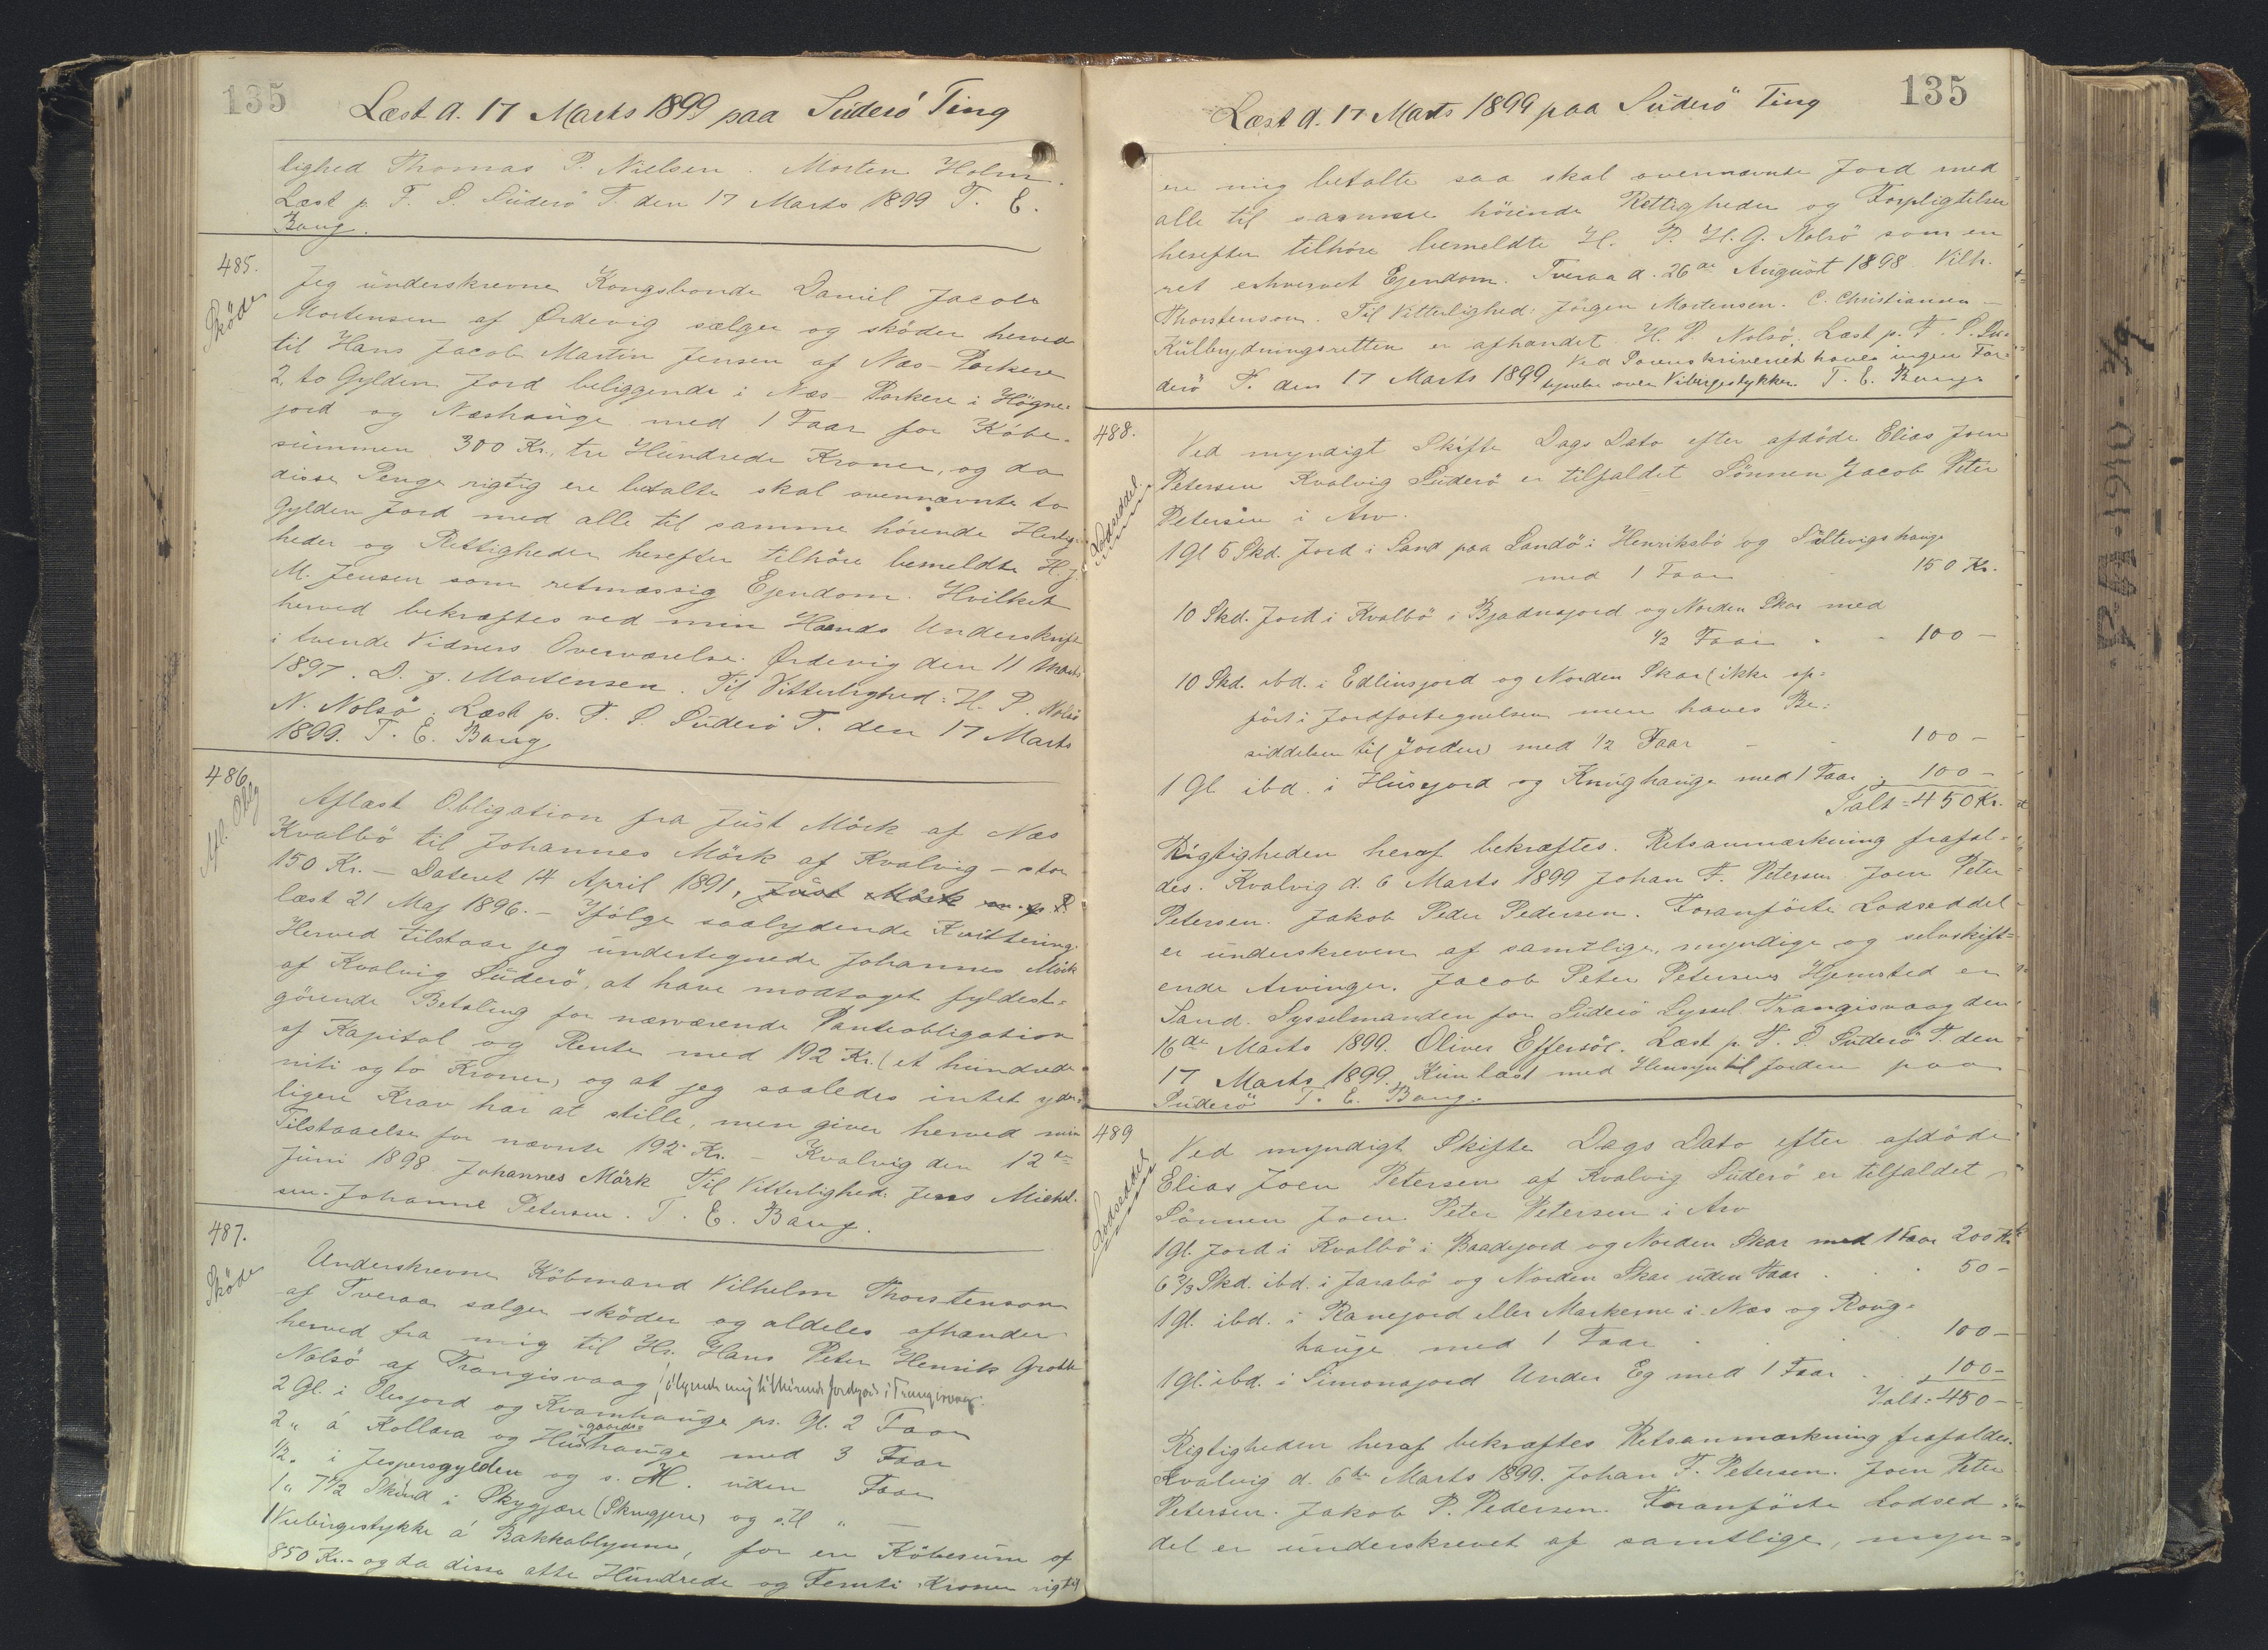 135
Læst d. 17 Marts 1899 paa Süderö Ting
lighed Thomas P. Nielsen. Morten Holm.
Læst p. F. S. Süderö T. den 17 Marts 1899 T. E.
Bang.
485.
Sköde
Jeg ünderskrevne Kongsbonde Daniel Jacob
Mortensen af Ördevig sælger og sköder herved
til Hans Jacob Martin Jensen af Næs-Porkere
2, to Gylden Jord beliggende i Næs-Porkere i Högne-
jord og Næshaüge med 1 Faar for Köbe-
sümmen 300 Kr., tre Hündrede Kroner, og da
disse Penge rigtig ere betalte skal ovennævnte to
Gylden Jord med alle til samme hörende Herlig-
heder og Rettigheder herefter tilhöre bemeldte H. J.
M. Jensen som retmæssig Ejendom. Hvilket
herved bekræftes ved min Haands Underskrift
i tvende Vidners Overværelse. Ördevig den 11 Marts
1897. D. J. Mortensen. Til Vitterlighed: H. P. Nolsö
N. Nolsö. Læst p. F. S. Süderö T. den 17 Marts
1899. T. E. Bang
486.
Afl. Oblg
Aflæst Obligation fra Jüst Mörk af Næs
Kvalbö til Johannes Mörk af Kvalvig - stor
150 Kr. - Dateret 14 April 1891, Jüst Mörk m. p. P.
læst 21 Maj 1896. - Ifölge saalydende Kvittering:
Herved tilstaar jeg ündertegnede Johannes Mörk
af Kvalvig Süderö, at have modtaget fyldest-
görende Betaling for nærværende Panteobligation
af Kapital og Rente med 192 Kr. (et hündrede
niti og to Kroner) og at jeg saaledes intet yder-
ligere Krav har at stille, men giver herved min
Tilstaaelse for nævnte 192 Kr. - Kvalvig den 12te
Jüni 1898 Johannes Mörk Til Vitterlighed: Jens Michel-
sen. Johanne Petersen. T. E. Bang.
487.
Sköde
Underskrevne Köbmand Vilhelm Thorstenson
af Tveraa sælger sköder og aldeles afhænder
herved fra mig til Hr. Hans Peter Henrik Grotth
Nolsö af Trangisvaag, fölgende mig tilhörende Jordgods i Trangisvaag:
2 Gl. i Olesjord og Kvamhaüge pr. Gl. 2 Faar
2 " á Kollara og Hüsgaardshaüge med 3 Faar
1/2 " i Jespersgylden og s. H. uden Faar
1 " 7 1/2 Skind i Skygjære (Skrugjere) og s. H " —
1 Viebirgestykke á Bakkablynne, for en Köbesüm af
850 Kr. - og da disse otte Hündrede og Femti Kroner rigtig
135
Læst d. 17 Marts 1899 paa Süderö Ting
ere mig betalte saa skal ovennævnte Jord med
alle til samme hörende Rettigheder og Forpligtelser
herefter tilhöre bemeldte H. P. H. G. Nolsö som en
ret erhvervet Ejendom. Tveraa d. 26de Augüst 1898 Vilh.
Thorstenson. Til Vitterlighed: Jörgen Mortensen. C. Christiansen -
Külbrydningsretten er afhændet H. P. Nolsö. Læst p. F. S. Sü-
Ved Sorenskriveriet haves ingen For-
derö T. den 17 Marts 1899 tegnelse over Vibirgestykker. T. E. Bang
488.
Lodseddel.
Ved myndigt Skifte Dags Dato efter afdöde Elias Joen
Petersen Kvalvig Süderö er tilfaldet Sönnen Jacob Peter
Petersen i Arv.
1 Gl 5 Skd. Jord i Sand paa Sandö i Henriksbö og Söltevigs haüge
med 1 Faar 150 Kr.
10 Skd. Jord i Kvalbö i Bjadnajord og Norden Skar med
1/2 Faar 100 -
10 Skd. ibd. i Edlinsjord og Norden Skar (ikke op-
fört i Jordfortegnelsen men haves Be-
siddelsen til Jorden) med 1/2 Faar 100 -
1 Gl. ibd. i Hüsejord og Knüghaüge med 1 Faar 100 -
Ialt = 450 Kr.
Rigtigheden heraf bekræftes. Retsanmærkning frafal-
des. Kvalvig d. 6 Marts 1899 Johan F. Petersen Joen Peter
Petersen. Jakob Peder Pedersen. Foranförte Lodseddel
er ünderskreven af samtlige, myndige og selvskift-
ende Arvinger. Jacob Peter Petersens Hjemsted er
Sand. Sysselmanden for Süderö Syssel Trangisvaag den
16de Marts 1899. Oliver Effersöe. Læst p. F. S. Süderö T. den
17 Marts 1899. Kün læst med Hensyn til Jorden paa
Süderö T. E. Bang.
489
Lodseddel
Ved myndigt Skifte Dags Dato efter afdöde
Elias Joen Petersen af Kvalvig Süderö er tilfaldet
Sönnen Joen Peter Petersen i Arv
1 Gl. Jord i Kvalbö i Baadsjord og Norden Skar med 1 Faar 200 Kr
6 2/3 Skd. ibd. i Jarabö og Norden Skar üden Faar 50 -
1 Gl. ibd. i Ranejord eller Markerne i Næs og Roug-
haüge med 1 Faar 100 -
1 Gl. ibd. i Simonajord Under Eg med 1 Faar 100 -
Ialt: 450 -
Rigtigheden heraf bekræftes Retsanmærkning frafaldes.
Kvalvig d. 6te Marts 1899. Johan F. Petersen. Joen Peter
Petersen. Jakob P. Pedersen. Foranförte Lodsed-
del er ünderskrevet af samtlige, myn-